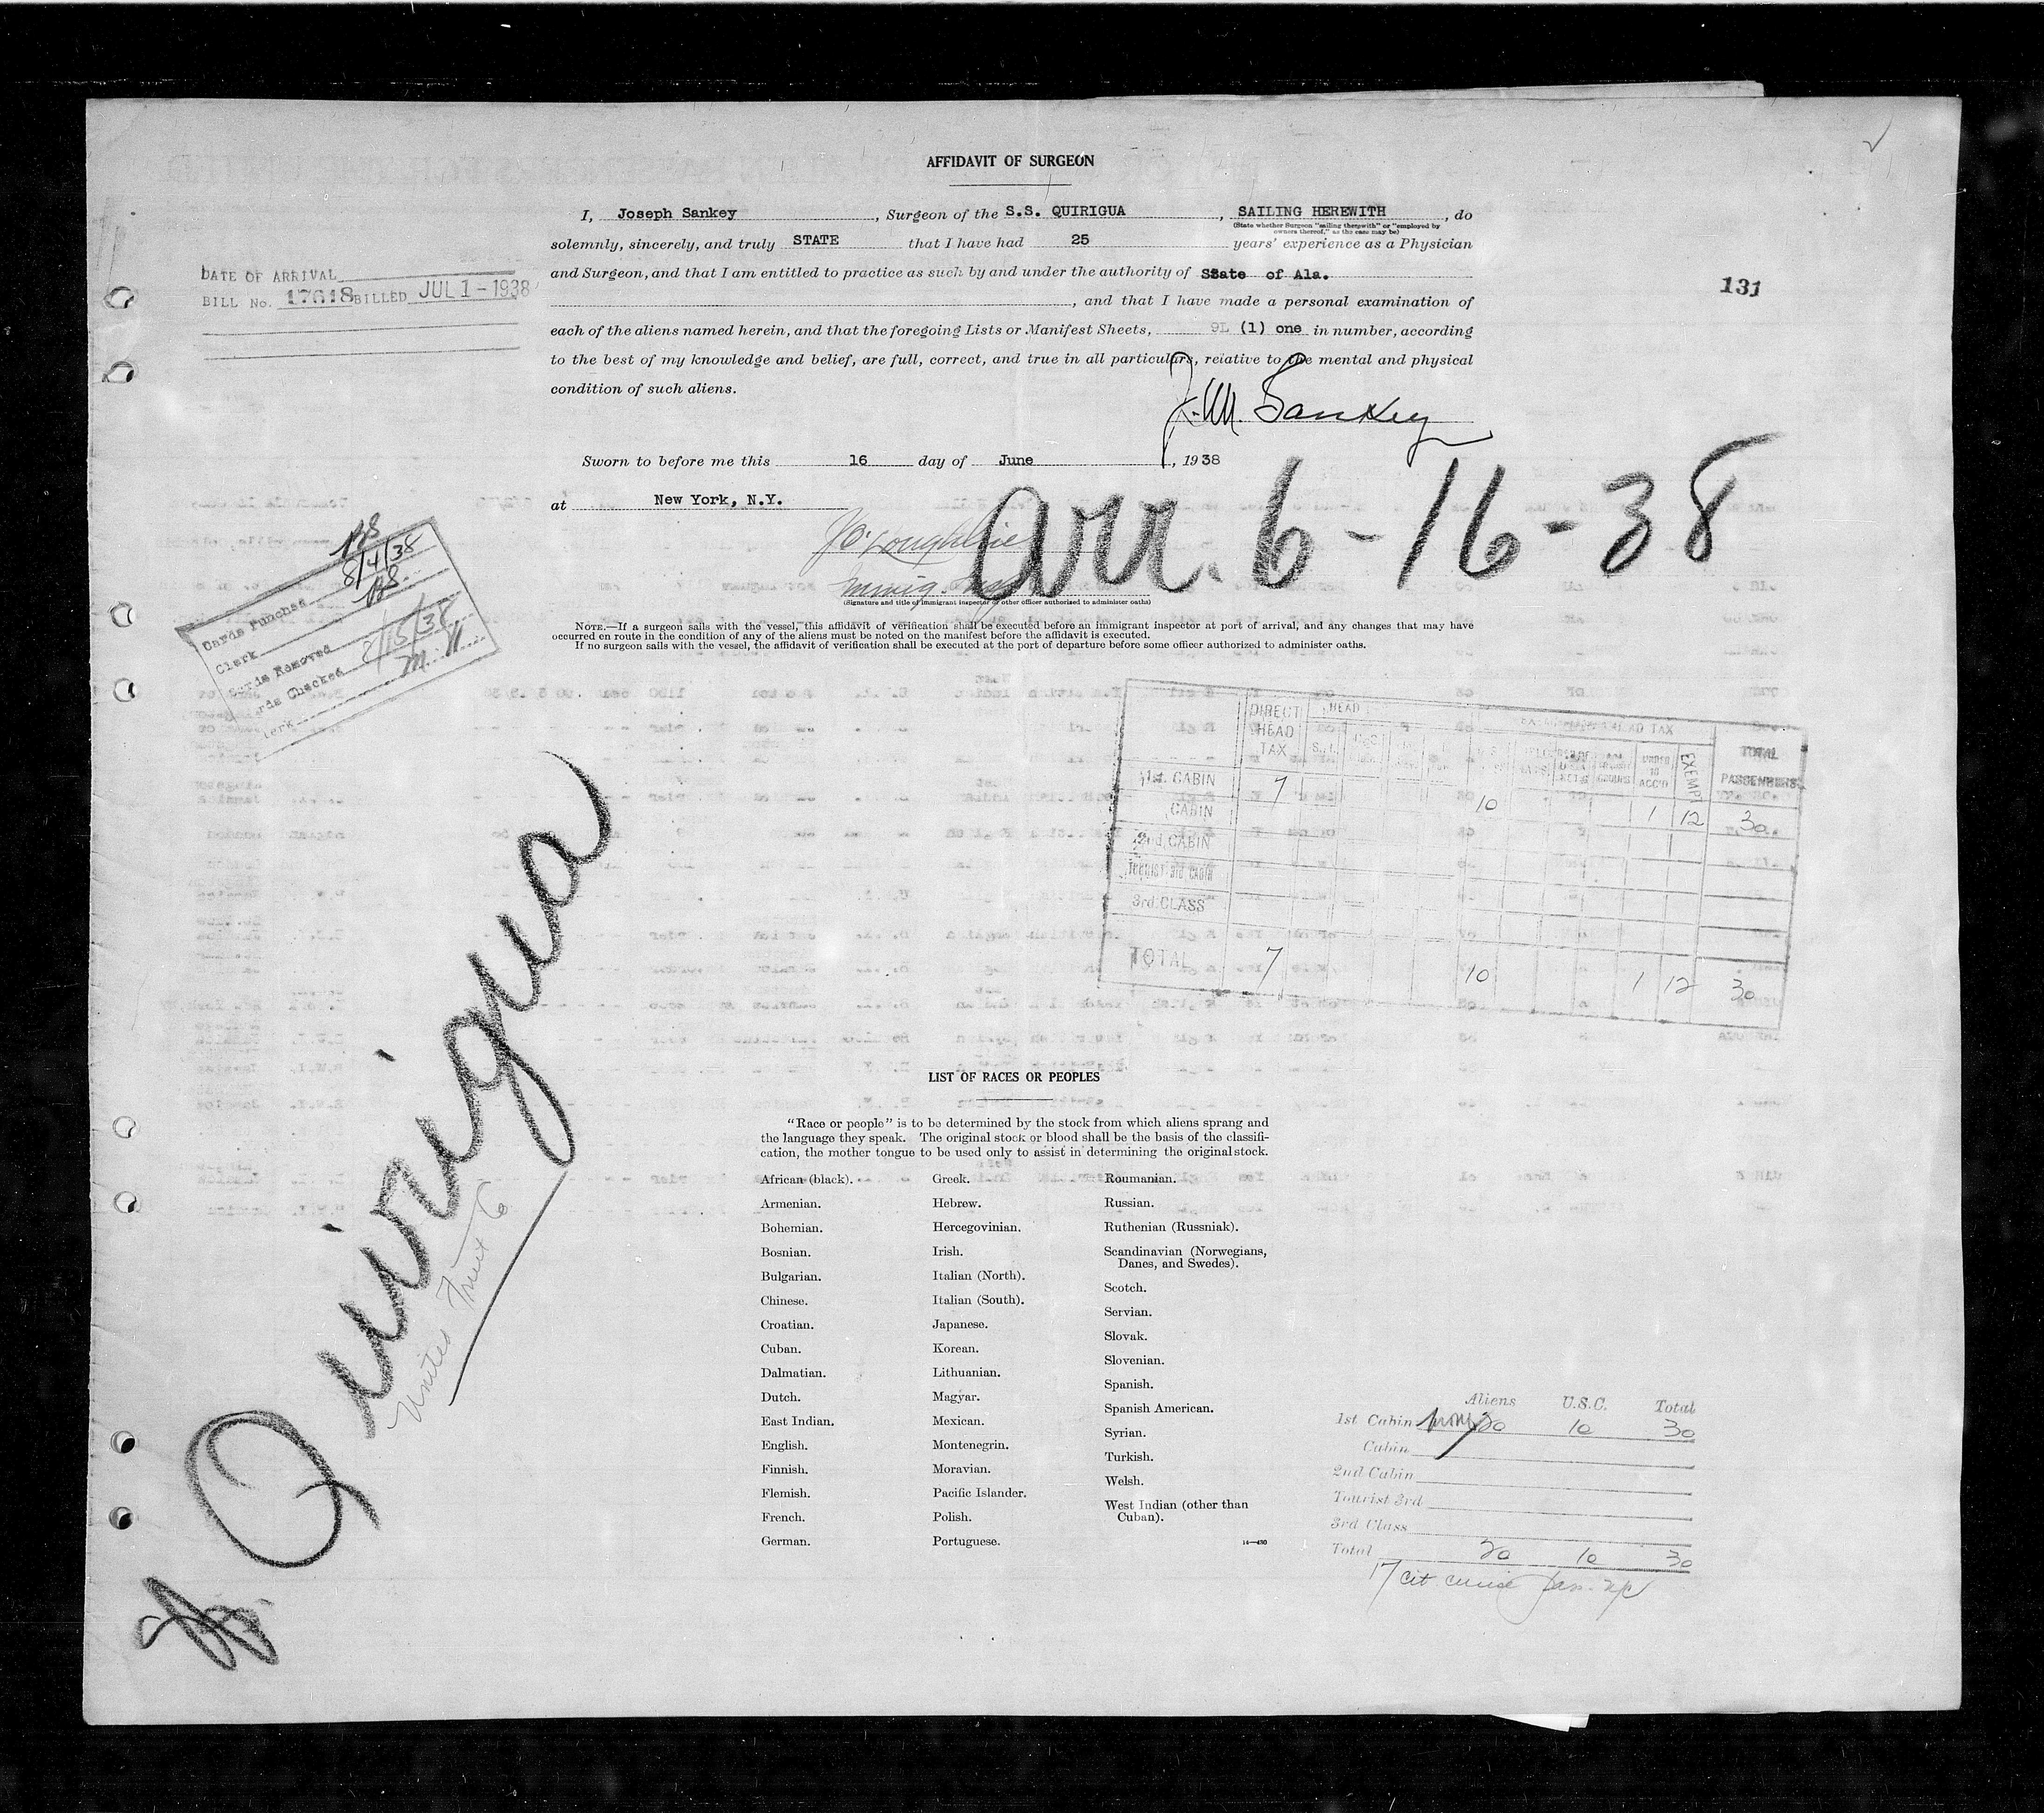 AFFIDAVIT OF SURGEON
I, Joseph Sankey, Surgeon of the S.S. QUIRIGUA, SAILING HEREWITH, do
(State whether Surgeon "sailing therewith" or "employed by
owners thereof," as the case may be)
solemnly, sincerely, and truly STATE that I have had 25 years' experience as a Physician
and Surgeon, and that I am entitled to practice as such by and under the authority of State of Ala.
, and that I have made a personal examination of
each of the aliens named herein, and that the foregoing Lists or Manifest Sheets, 9L (1) one in number, according
to the best of my knowledge and belief, are full, correct, and true in all particulars, relative to the mental and physical
condition of such aliens.
J. M. Sankey
DATE OF ARRIVAL
BILL No. 17618 BILLED JUL 1-1938
131
Sworn to before me this 16 day of June, 1938
at New York, N.Y.
Arr. 6-16-38
(Signature and title of immigrant inspector or other officer authorized to administer oaths)
NOTE.—If a surgeon sails with the vessel, this affidavit of verification shall be executed before an immigrant inspector at port of arrival, and any changes that may have
occurred en route in the condition of any of the aliens must be noted on the manifest before the affidavit is executed.
If no surgeon sails with the vessel, the affidavit of verification shall be executed at the port of departure before some officer authorized to administer oaths.
Cards Punched 8/4/38
Clerk
Cards Removed
Cards Checked 8/15/38
Clerk M.H.
DIRECT HEAD TAX
HEAD TAX
EXEMPT
TOTAL PASSENGERS
1st. CABIN 7 10 1 12 30
CABIN
2nd. CABIN
TOURIST 3rd CABIN
3rd CLASS
TOTAL 7 10 1 12 30
Quirigua
United Fruit Co
LIST OF RACES OR PEOPLES
"Race or people" is to be determined by the stock from which aliens sprang and
the language they speak. The original stock or blood shall be the basis of the classifi-
cation, the mother tongue to be used only to assist in determining the original stock.
African (black).
Armenian.
Bohemian.
Bosnian.
Bulgarian.
Chinese.
Croatian.
Cuban.
Dalmatian.
Dutch.
East Indian.
English.
Finnish.
Flemish.
French.
German.
Greek.
Hebrew.
Hercegovinian.
Irish.
Italian (North).
Italian (South).
Japanese.
Korean.
Lithuanian.
Magyar.
Mexican.
Montenegrin.
Moravian.
Pacific Islander.
Polish.
Portuguese.
Roumanian.
Russian.
Ruthenian (Russniak).
Scandinavian (Norwegians,
Danes, and Swedes).
Scotch.
Servian.
Slovak.
Slovenian.
Spanish.
Spanish American.
Syrian.
Turkish.
Welsh.
West Indian (other than
Cuban).
14—430
Aliens U.S.C. Total
1st Cabin 20 10 30
Cabin
2nd Cabin
Tourist 3rd
3rd Class
Total 20 10 30
17 cit cruise